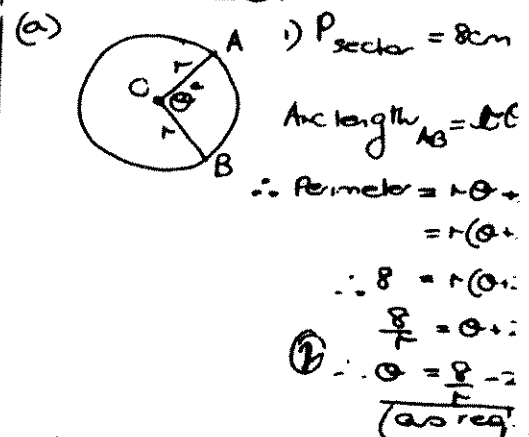 (a)
A
r
C θᶜ
r
B
i) P sector = 8cm
Arc length AB = rθ
∴ Perimeter = rθ +
= r(θ+
∴ 8 = r(θ+2
8/r = θ+2
② ∴ θ = 8/r - 2
(as req.